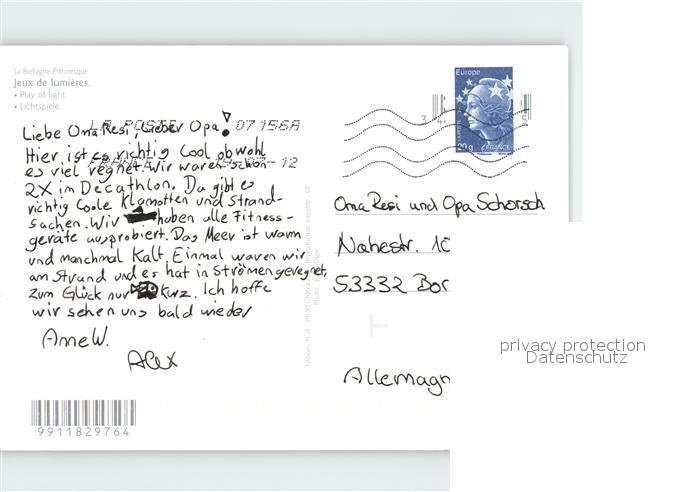 La Bretagne Pittoresque
Jeux de lumières.
• Play of light.
• Lichtspiele.
LA POSTE 07156A
12
Liebe Oma Resi, Lieber Opa!
Hier ist es richtig Cool obwohl
es viel regnet. Wir waren schon
2X im Decathlon. Da gibt es
richtig Coole Klamotten und Strand-
sachen. Wir haben alle Fitness-
geräte ausprobiert. Das Meer ist warm
und manchmal Kalt. Einmal waren wir
am Strand und es hat in Strömen geregnet,
zum Glück nur kurz. Ich hoffe
wir sehen uns bald wieder
Anne W.
Alex
9911829764
Europe
20g
FRANCE
Oma Resi und Opa Schorsch
Nahestr. 10
53332 Bor
Allemagn
privacy protection
Datenschutz